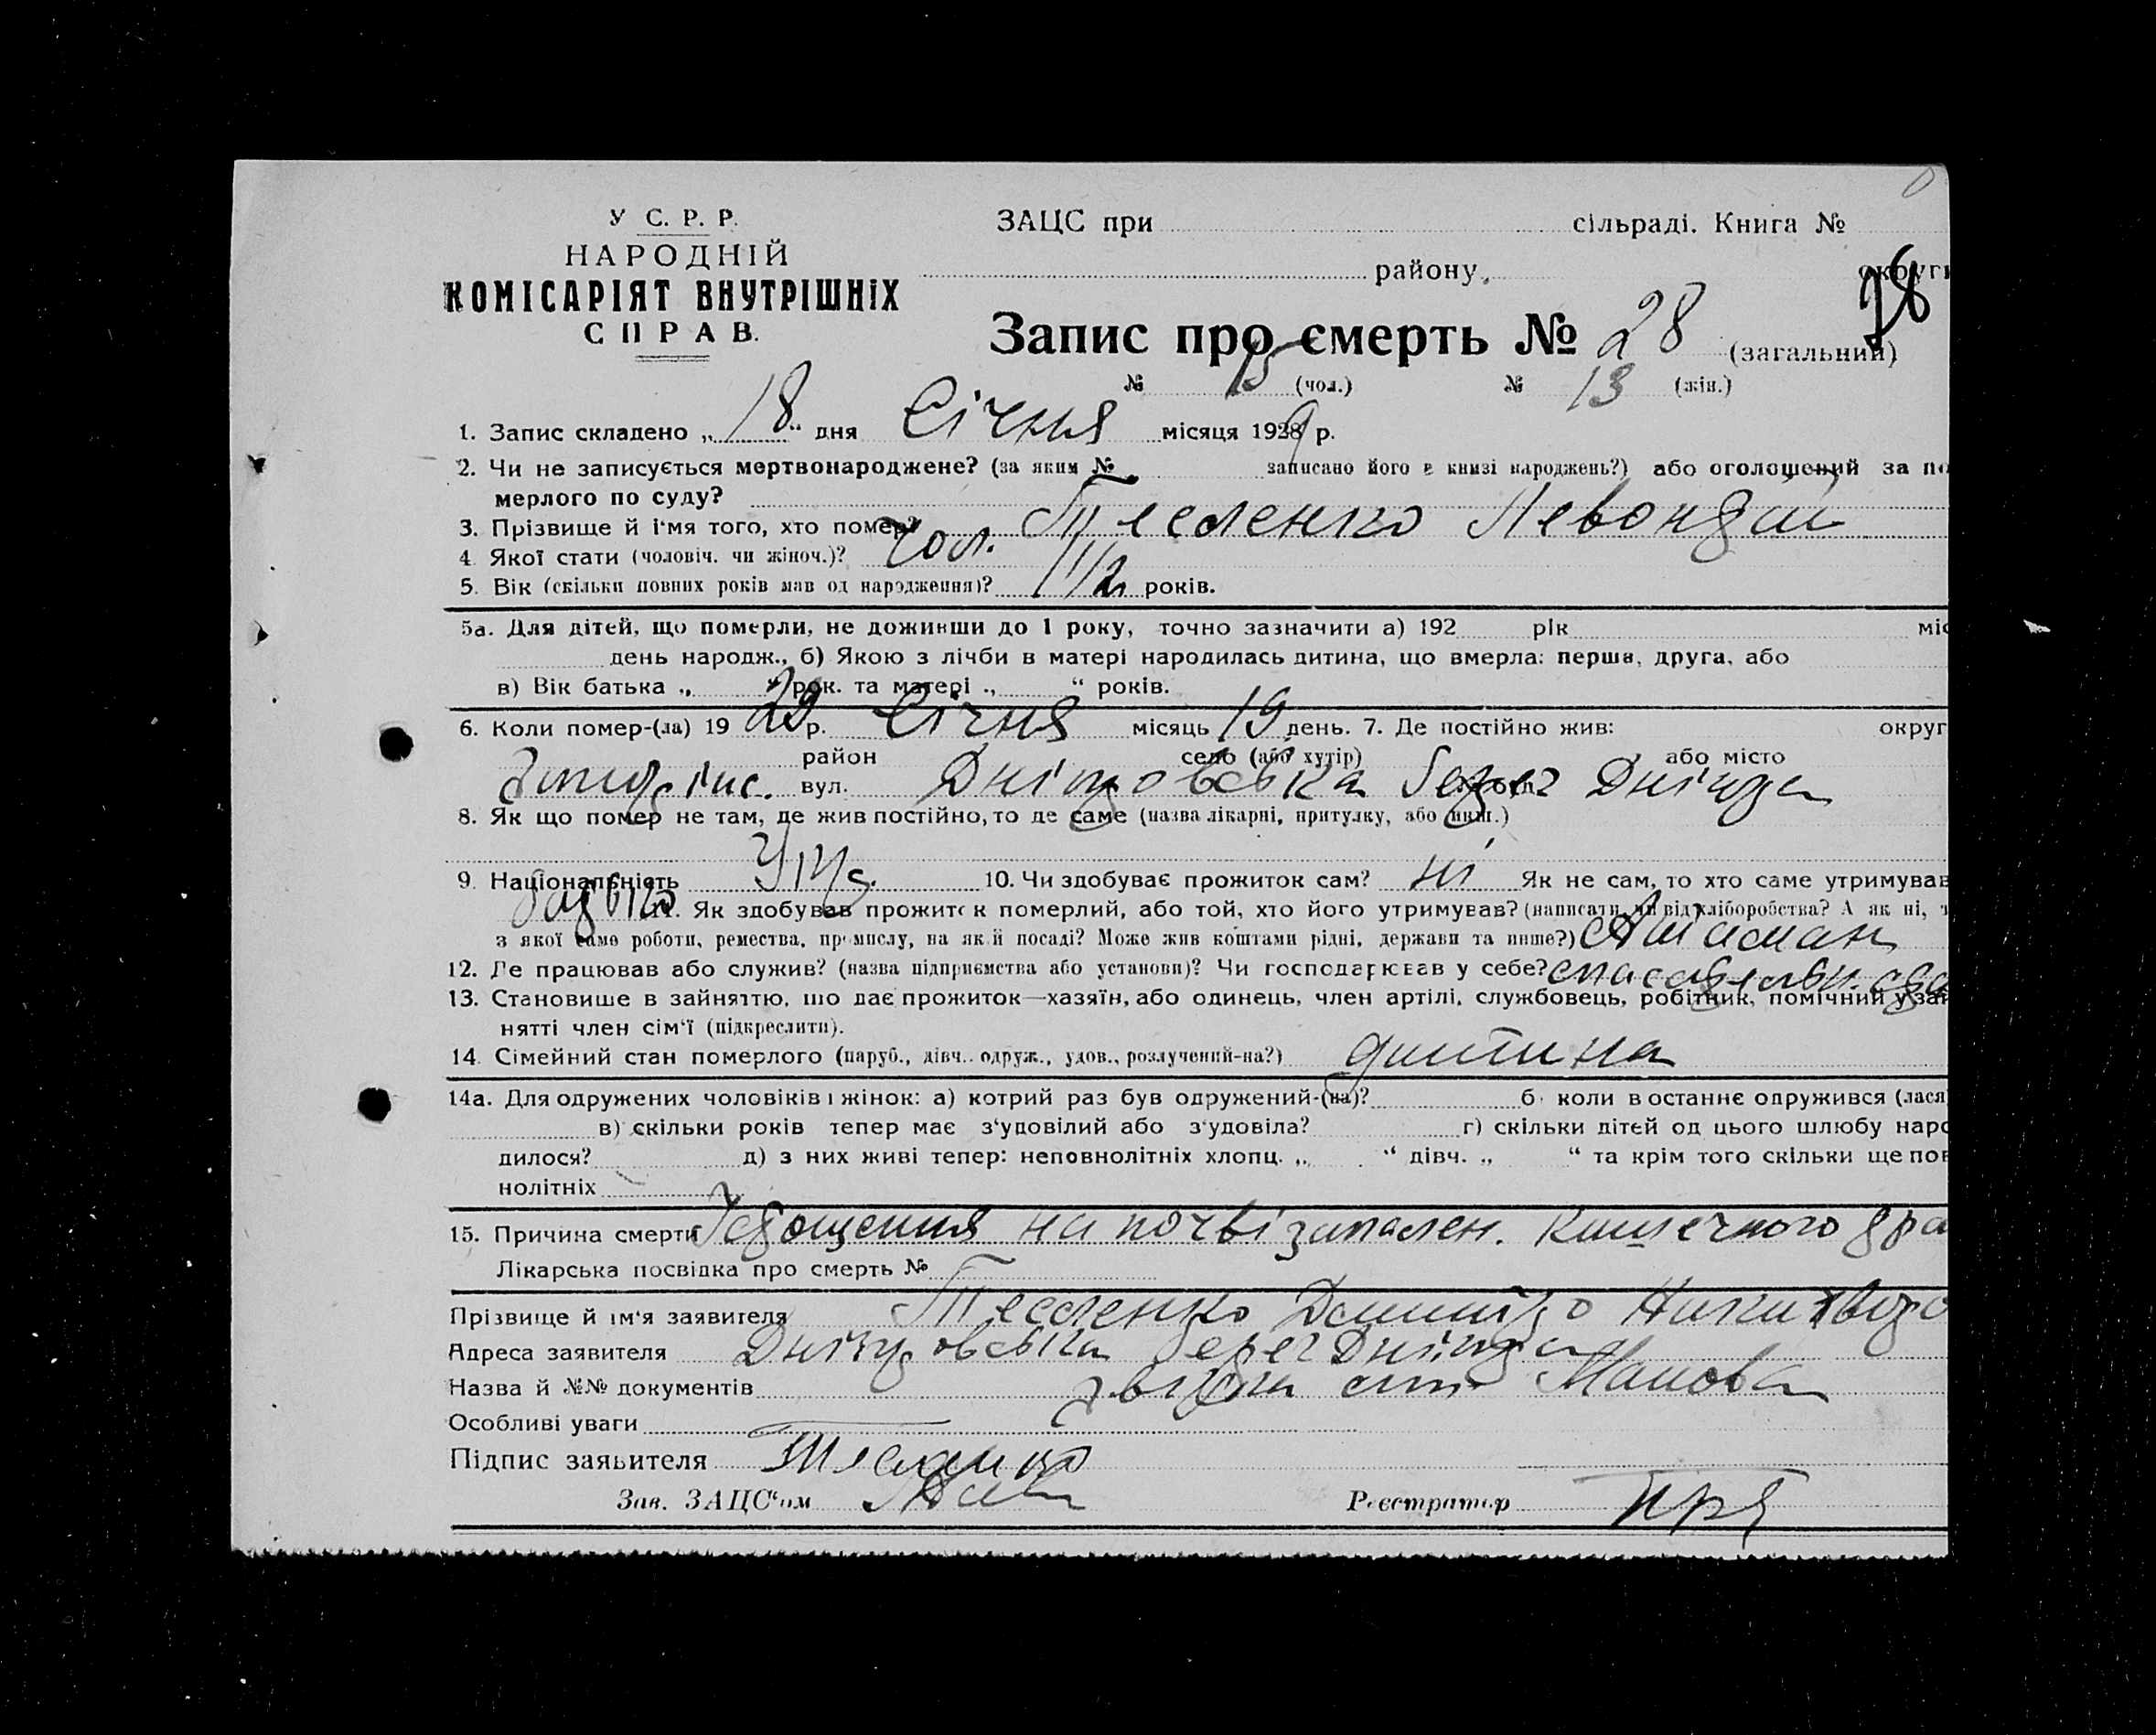 У С. Р. Р.
НАРОДНІЙ
КОМІСАРІЯТ ВНУТРІШНІХ
СПРАВ.
ЗАЦС при сільраді. Книга №
району, округи
28
Запис про смерть № 28 (загальний)
№ 15 (чол.) № 13 (жін.)
1. Запис складено „18“ дня Січня місяця 1929 р.
2. Чи не записується мертвонароджене? (за яким № записано його в книзі народжень?) або оголошений за по
мерлого по суду?
3. Прізвище й і'мя того, хто помер? Тесленко Левондій
4. Якої стати (чоловіч. чи жіноч.)? чол.
5. Вік (скільки повних років мав од народження)? 1 1/2 років.
5а. Для дітей, що померли, не доживши до 1 року, точно зазначити а) 192 рік міс
день народж., б) Якою з лічби в матері народилась дитина, що вмерла: перша, друга, або
в) Вік батька „ “ рок. та матері „ “ років.
6. Коли помер-(ла) 19 29 р. Січня місяць 19 день. 7. Де постійно жив: округ
район село (або хутір) або місто
вул. Дніпровська берег Дніпра
8. Як що помер не там, де жив постійно, то де саме (назва лікарні, притулку, або инш.)
9. Національність Укр. 10. Чи здобуває прожиток сам? ні Як не сам, то хто саме утримував
батько 11. Як здобував прожиток померлий, або той, хто його утримував? (написати, чи від хліборобства? А як ні, т
з якої саме роботи, ремества, промислу, на якій посаді? Може жив коштами рідні, держави та инше?)
12. Де працював або служив? (назва підприємства або установи)? Чи господарював у себе?
13. Становище в зайняттю, що дає прожиток—хазяїн, або одинець, член артілі, службовець, робітник, помічний у зай
нятті член сім'ї (підкреслити).
14. Сімейний стан померлого (паруб., дівч., одруж., удов., розлучений-на?) дитина
14а. Для одружених чоловіків і жінок: а) котрий раз був одружений-(на)? б) коли в останнє одружився (лася
в) скільки років тепер має з'удовілий або з'удовіла? г) скільки дітей од цього шлюбу наро
дилося? д) з них живі тепер: неповнолітніх хлопц. „ “ дівч. „ “ та крім того скільки ще пов
нолітніх
15. Причина смерти на почві запален. кишечного
Лікарська посвідка про смерть №
Прізвище й ім'я заявителя Тесленко Дмитро
Адреса заявителя Дніпровська берег Дніпра
Назва й №№ документів
Особливі уваги
Підпис заявителя Тесленко
Зав. ЗАЦС'ом Реєстратор